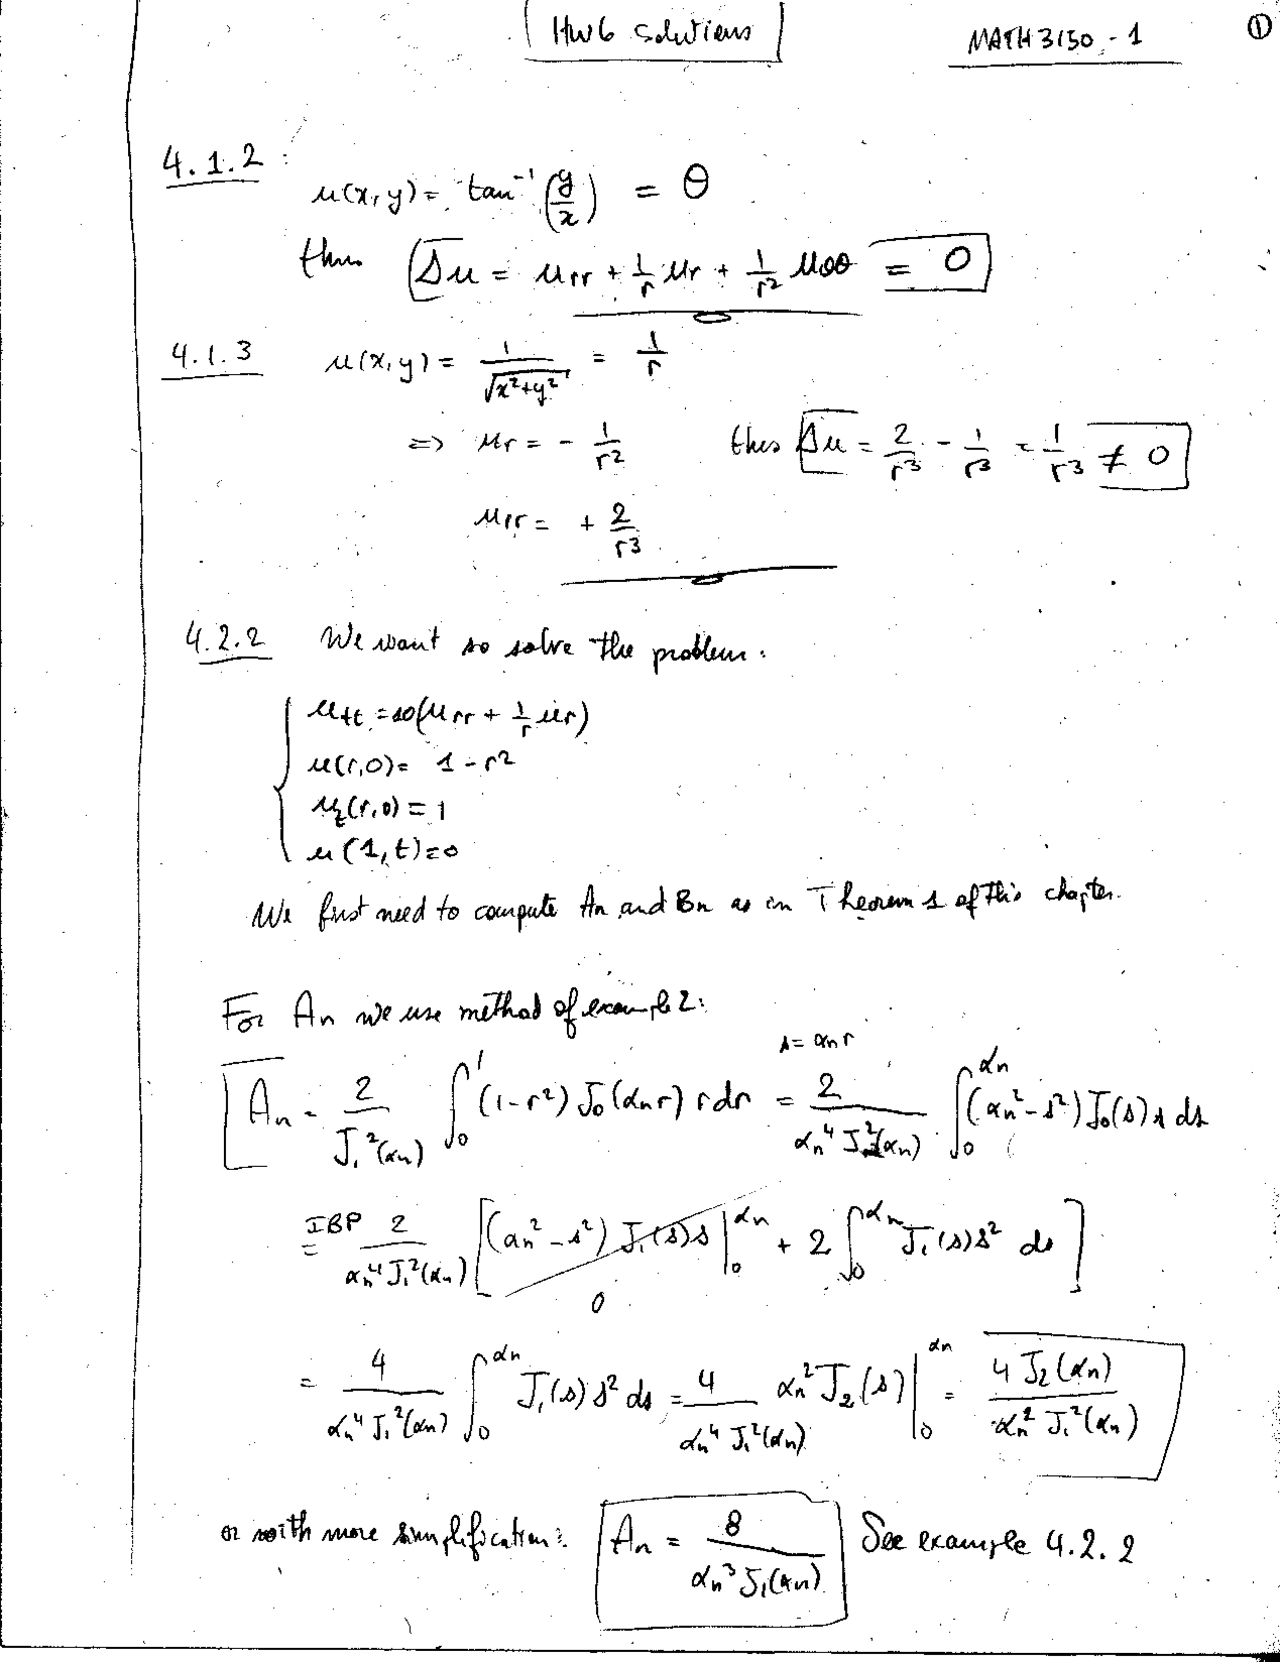 HW6 Solutions
MATH3150 - 1
①
4.1.2 :
u(x,y) = tan⁻¹(y/x) = θ
thus Δu = u_rr + 1/r u_r + 1/r² u_θθ = 0
4.1.3 u(x,y) = 1/√(x²+y²) = 1/r
=> u_r = - 1/r² thus Δu = 2/r³ - 1/r³ = 1/r³ ≠ 0
u_rr = + 2/r³
4.2.2 We want to solve the problem:
u_tt = 10(u_rr + 1/r u_r)
u(r,0) = 1 - r²
u_t(r,0) = 1
u(1,t) = 0
We first need to compute An and Bn as in Theorem 1 of this chapter.
For An we use method of example 2:
s = αn r
An = 2/J₁²(αn) ∫₀¹ (1-r²) J₀(αn r) r dr = 2/(αn⁴ J₁²(αn)) ∫₀^αn (αn² - s²) J₀(s) s ds
IBP = 2/(αn⁴ J₁²(αn)) [(αn² - s²) J₁(s) s |₀^αn + 2 ∫₀^αn J₁(s) s² ds]
0
= 4/(αn⁴ J₁²(αn)) ∫₀^αn J₁(s) s² ds = 4/(αn⁴ J₁²(αn)) αn² J₂(s) |₀^αn = 4 J₂(αn)/(αn² J₁²(αn))
or with more simplification: An = 8/(αn³ J₁(αn)) See example 4.2.2